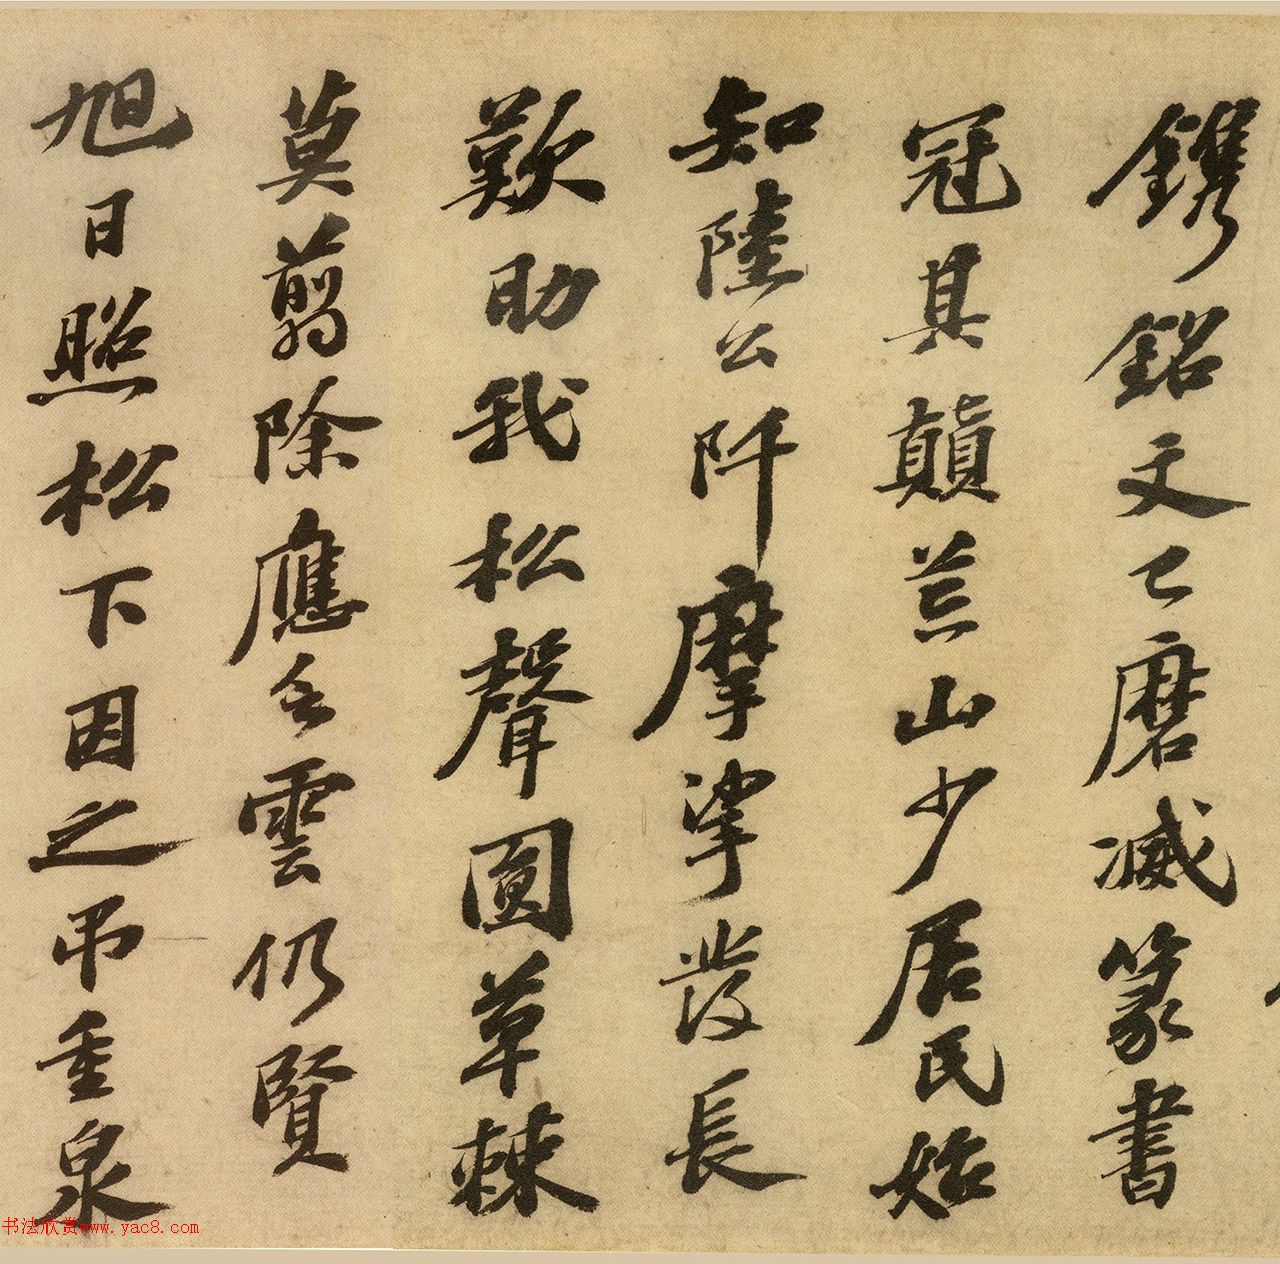 鐫銘文已磨滅篆書
冠其顛荒山少居民始
知陸公阡摩挲發長
歎助我松聲圓草棘
莫翦除應雲仍賢
旭日照松下因之吊重泉
书法欣赏www.yac8.com